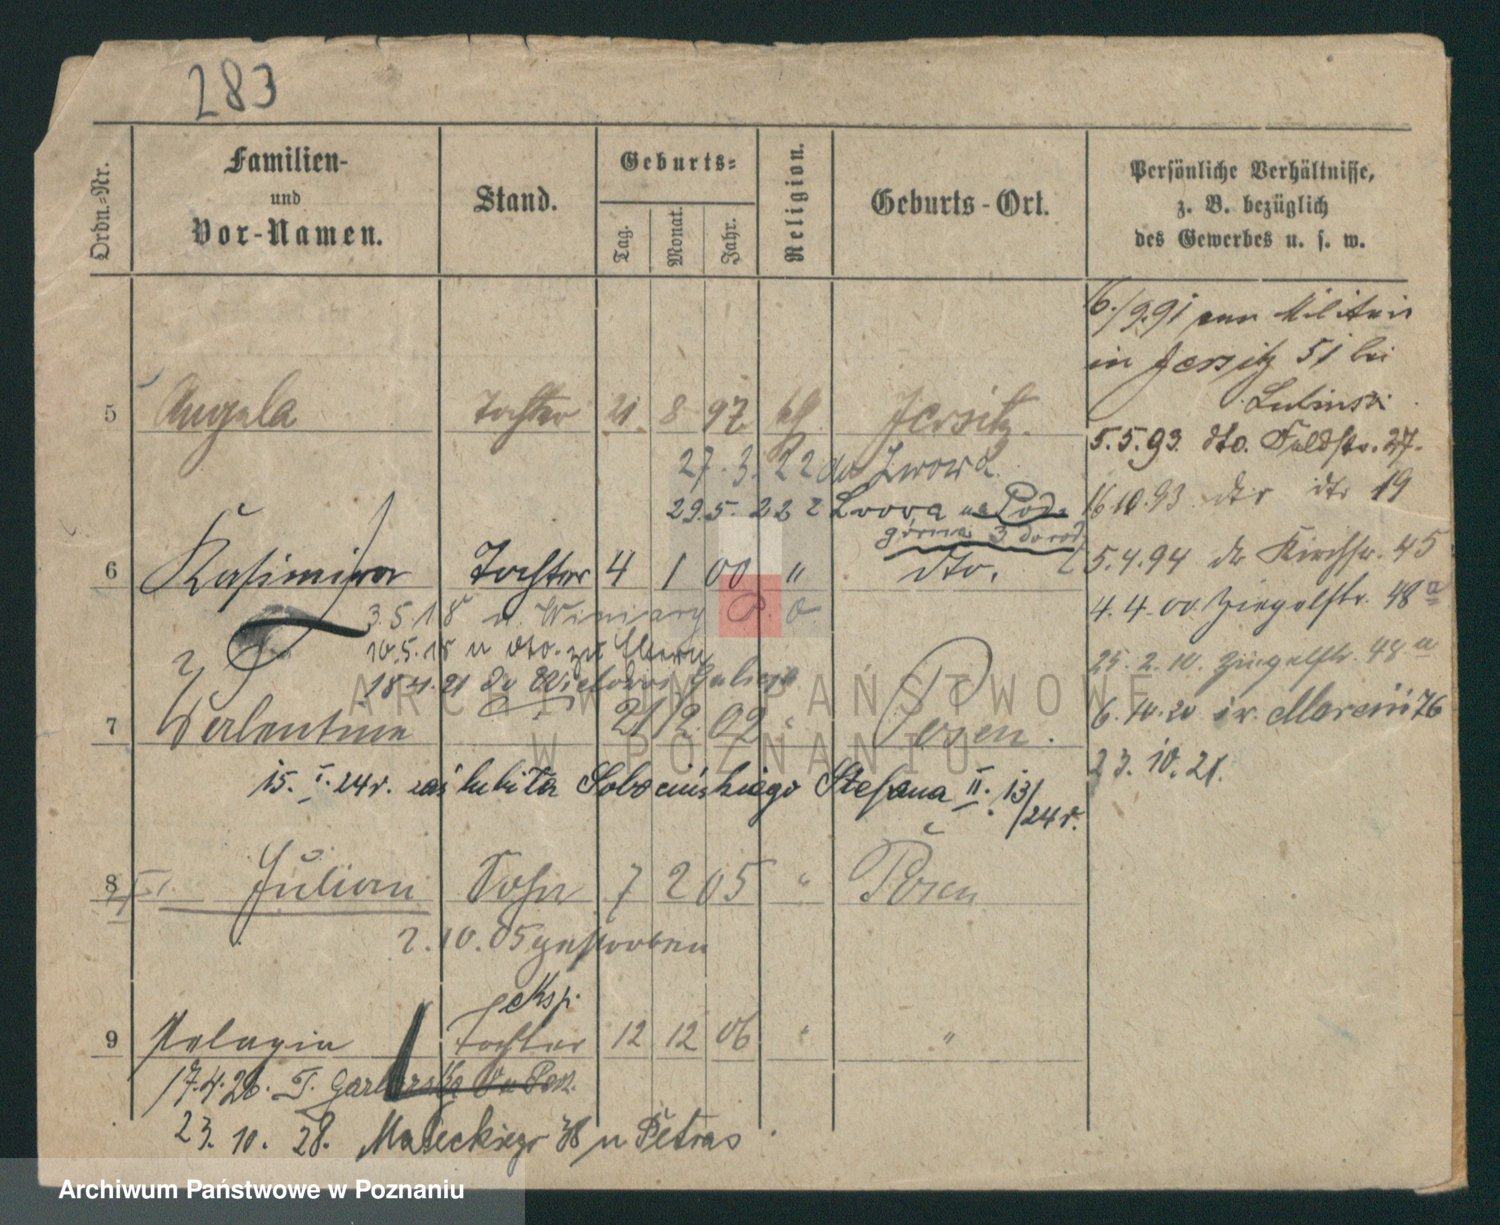 283
Ordn.-Nr.
Familien-
und
Vor-Namen.
Stand.
Geburts-
Tag.
Monat.
Jahr.
Religion.
Geburts-Ort.
Persönliche Verhältnisse,
z. B. bezüglich
des Gewerbes u. s. w.
16./9.91 vom Militair
in Jersitz 51 bei
Lubinski
5 Angela Tochter 21 8 97 kth Jersitz.
5.5.93. dto. Feldstr. 27.
27.3.22 do Lwowa
16.10.93 dto dto 19
29.5.22 z Lwowa
górna 3 dorod
6 Kasimira Tochter 4 1 00 " dto.
5.4.94 do Kirchstr. 45
3.5.18 n. Winiary
4.4.00 Ziegelstr. 48a
10.5.18 n dto. zu Eltern
25.2.10. Ziegelstr. 48a
18.4.21 do
7 Valentine 21 12 02 " Posen.
6.10.20 Marcin 76
23.10.21.
15. I. 24r. zaślubiła Sobocińskiego Stefana II. 13/24 r.
8 Julian Sohn 7 2 05 " Posen
2.10.05 gestorben
eksp.
9 Pelagia Tochter 12 12 06 " "
17.4.26. T. Garbarska
23.10.28. Małeckiego 38 u Petras
ARCHIWUM PAŃSTWOWE
W POZNANIU
Archiwum Państwowe w Poznaniu